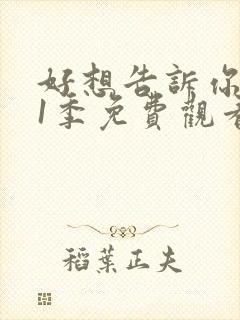 好想告訴你
1季免費觀看
稻葉正夫